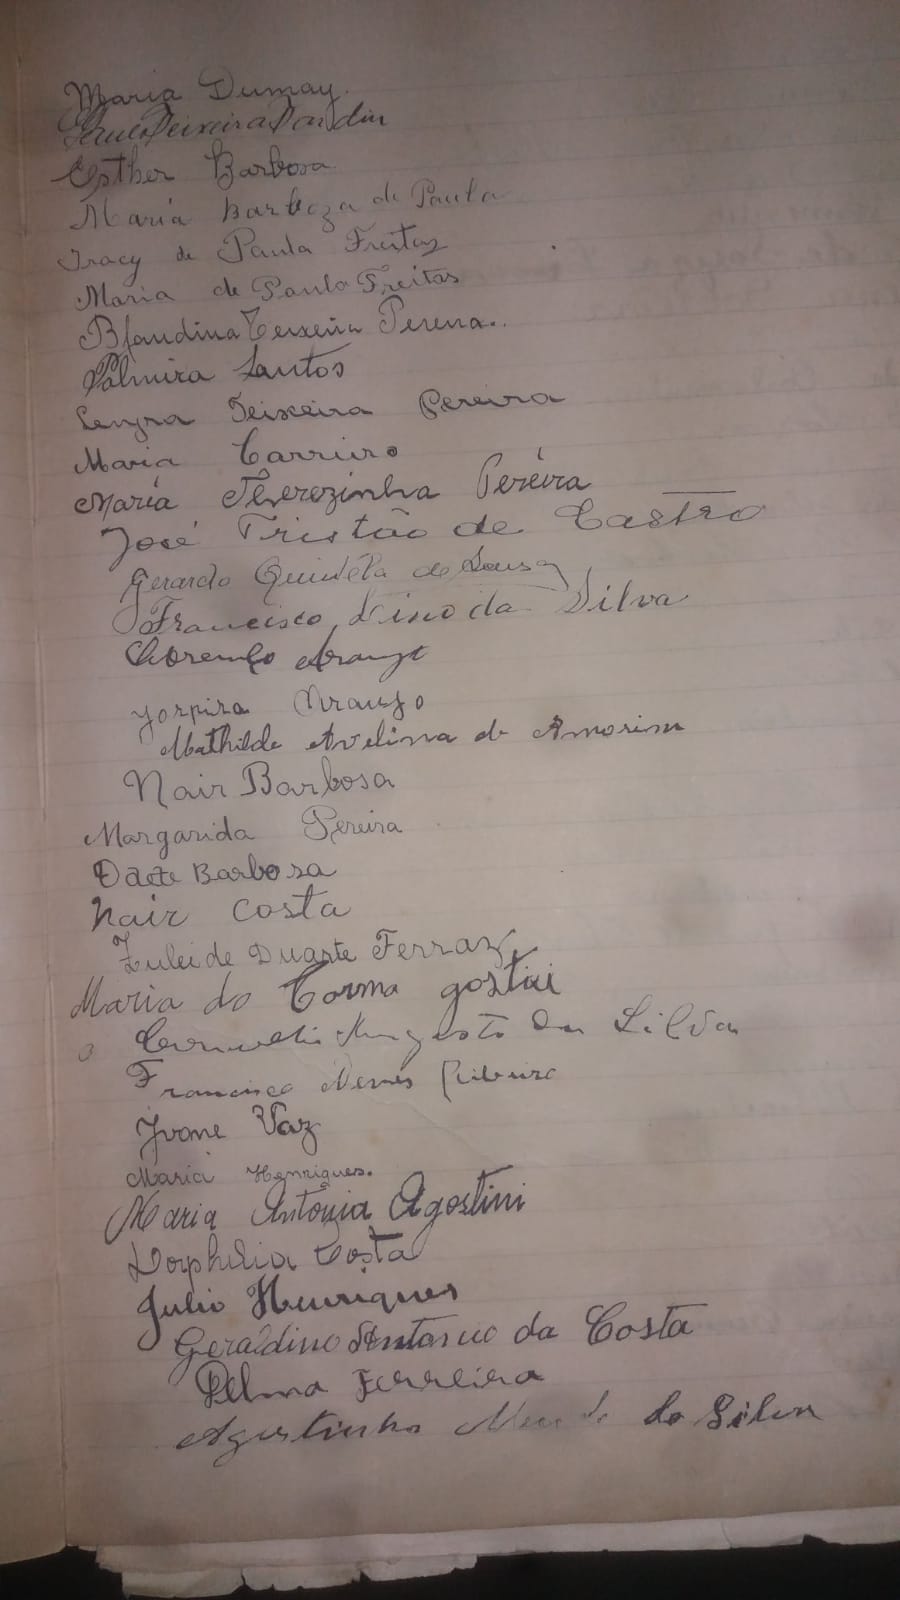 Maria Dumay.
Teixeira
Esther Barbosa
Maria Barboza de Paula
Iracy de Paula Freitas
Maria de Paula Freitas
Blandina Teixeira Pereira.
Palmira Santos
Lenyra Teixeira Pereira
Maria Carriiro
Maria Therezinha Pereira
José Tristão de Castro
Gerardo Quintela de Sousa
Francisco Lino da Silva
Araujo
Araujo
Mathilde Avelina de Amorim
Nair Barbosa
Margarida Pereira
Barbosa
Nair Costa
Zuleide Duarte Ferraz
Maria do Carmo
Augusto da Silva
Francisco Neves Ribeiro
Yvone Vaz
Maria Henriques.
Maria Antonia Agostini
Costa
Julio Henriques
Geraldino Antonio da Costa
Ferreira
Agostinho da Silva